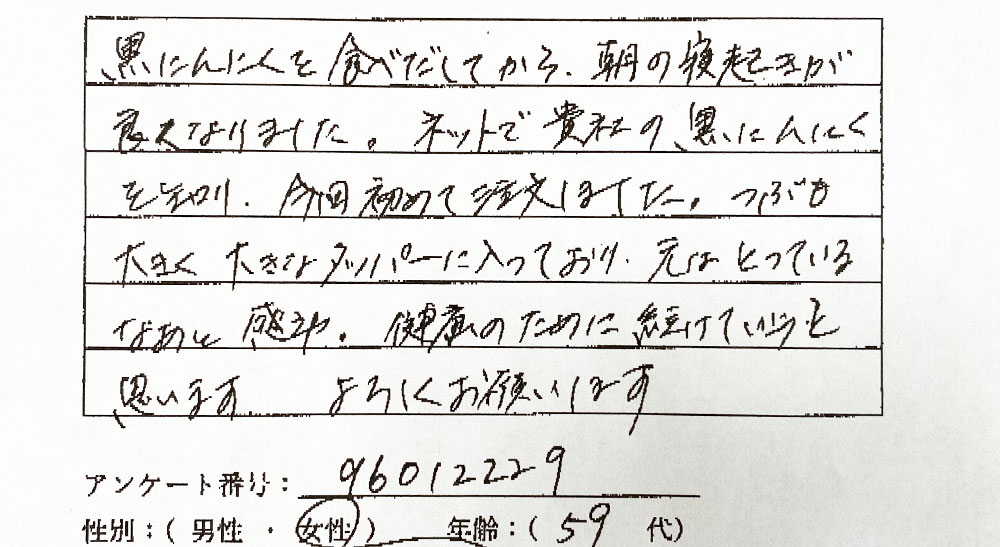 黒にんにくを食べだしてから、朝の寝起きが
良くなりました。ネットで貴社の黒にんにく
を知り、今回初めて注文しました。つぶも
大きく大きなタッパーに入っており、元はとっている
なあと感謝。健康のために続けていこうと
思います よろしくお願いします
アンケート番号：96012229
性別：( 男性 ・ 女性 ) 年齢：( 59 代)